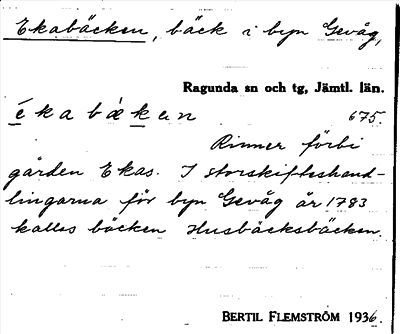 Ekabäcken, bäck i byn Gevåg,
Ragunda sn och tg, Jämtl. län.
é k a b ä̀ k e n
675.
Rinner förbi
gården Ekas. I storskifteshand-
lingarna för byn Gevåg år 1783
kallas bäcken Husbäcksbäcken.
BERTIL FLEMSTRÖM 1936.